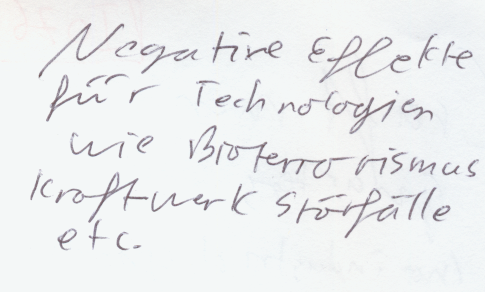 Negative Effekte
für Technologien
wie Bioterrorismus
Kraftwerk Störfälle
etc.